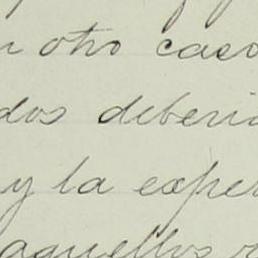 n otro caso
dos deberia
y la exper
aquellos